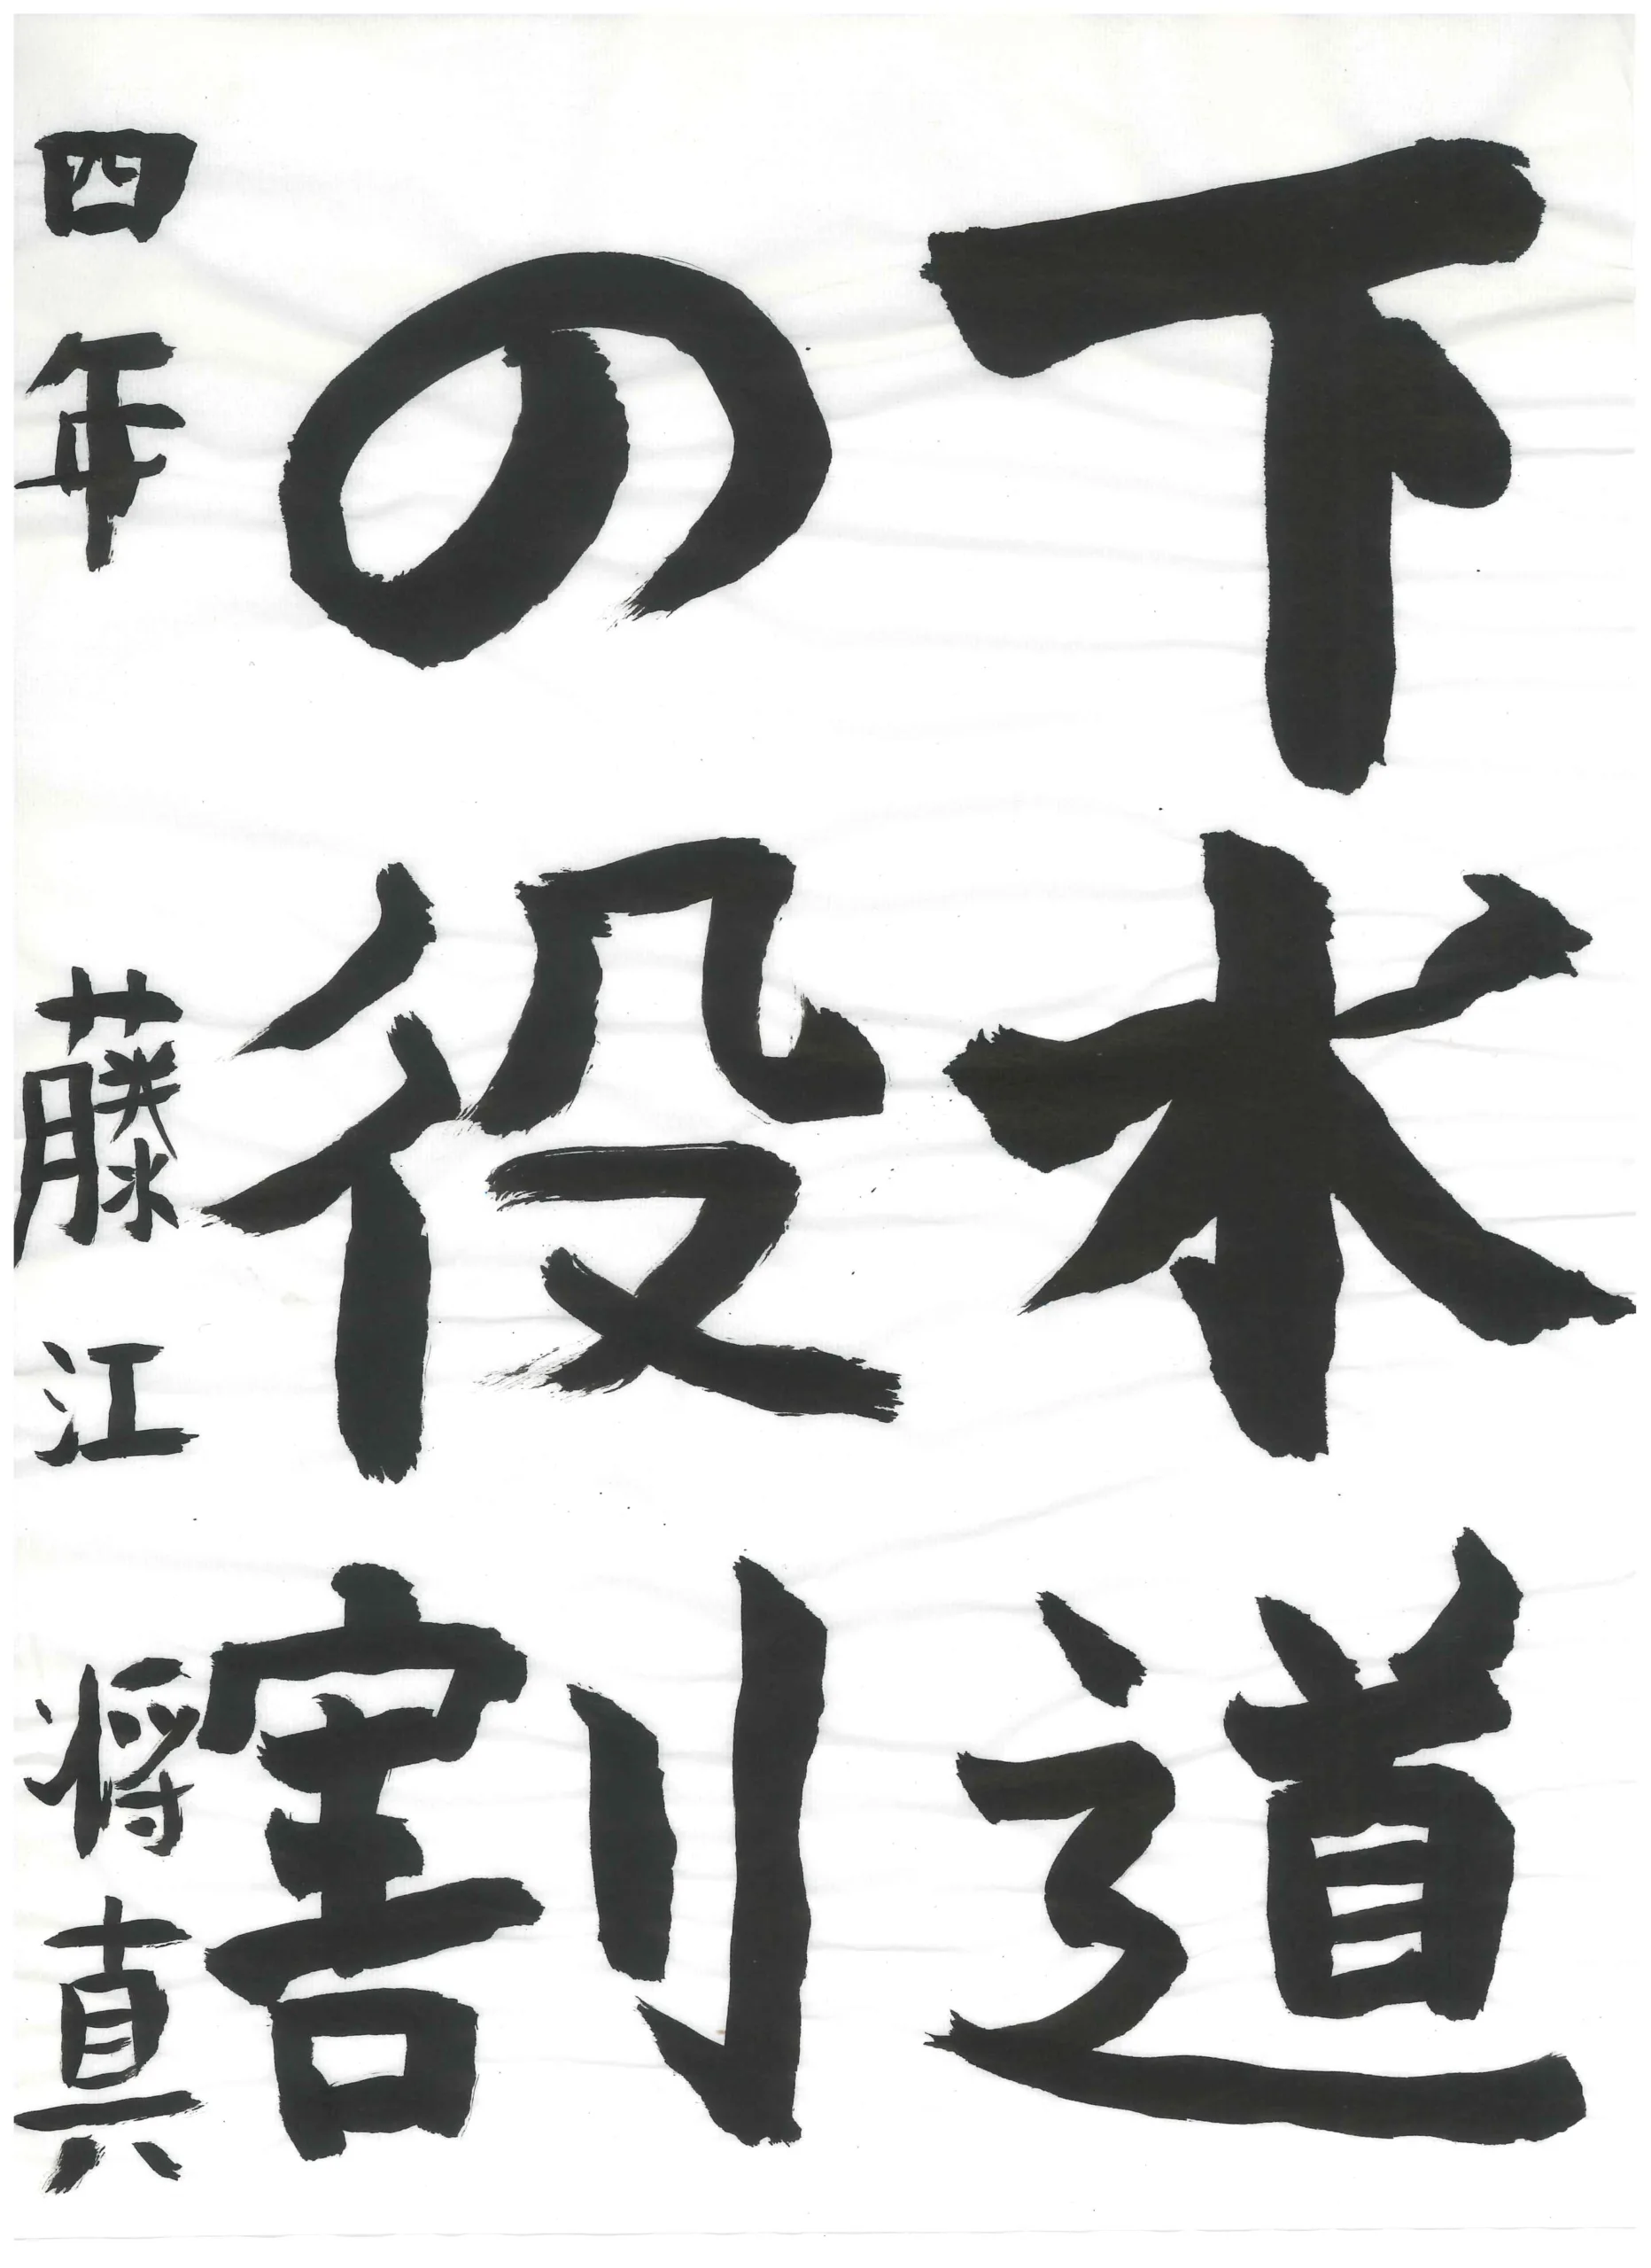 下水道
の役割
四年 藤江将真